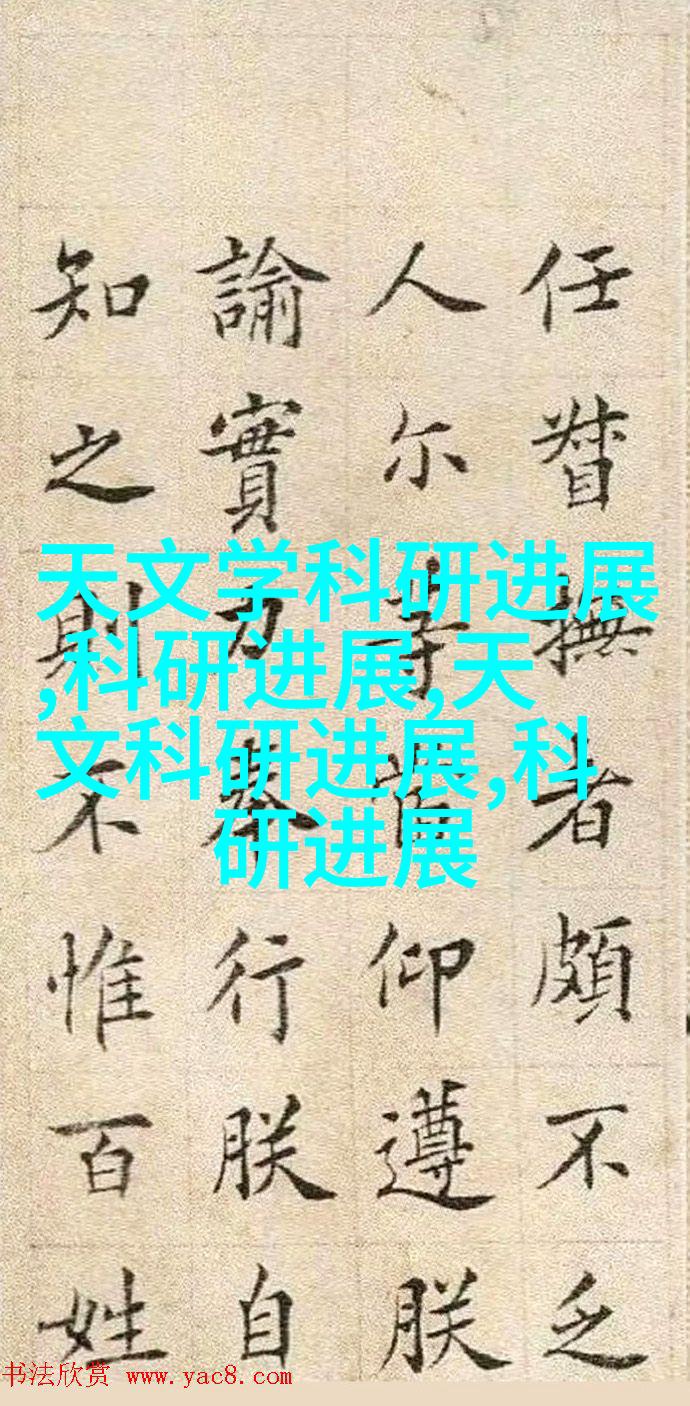 任督撫者頗不乏
人尔等仰遵朕
諭實力奉行朕自
知之則不惟百姓
天文学科研进展
,科研进展,天
文科研进展,科
研进展
书法欣赏 www.yac8.com